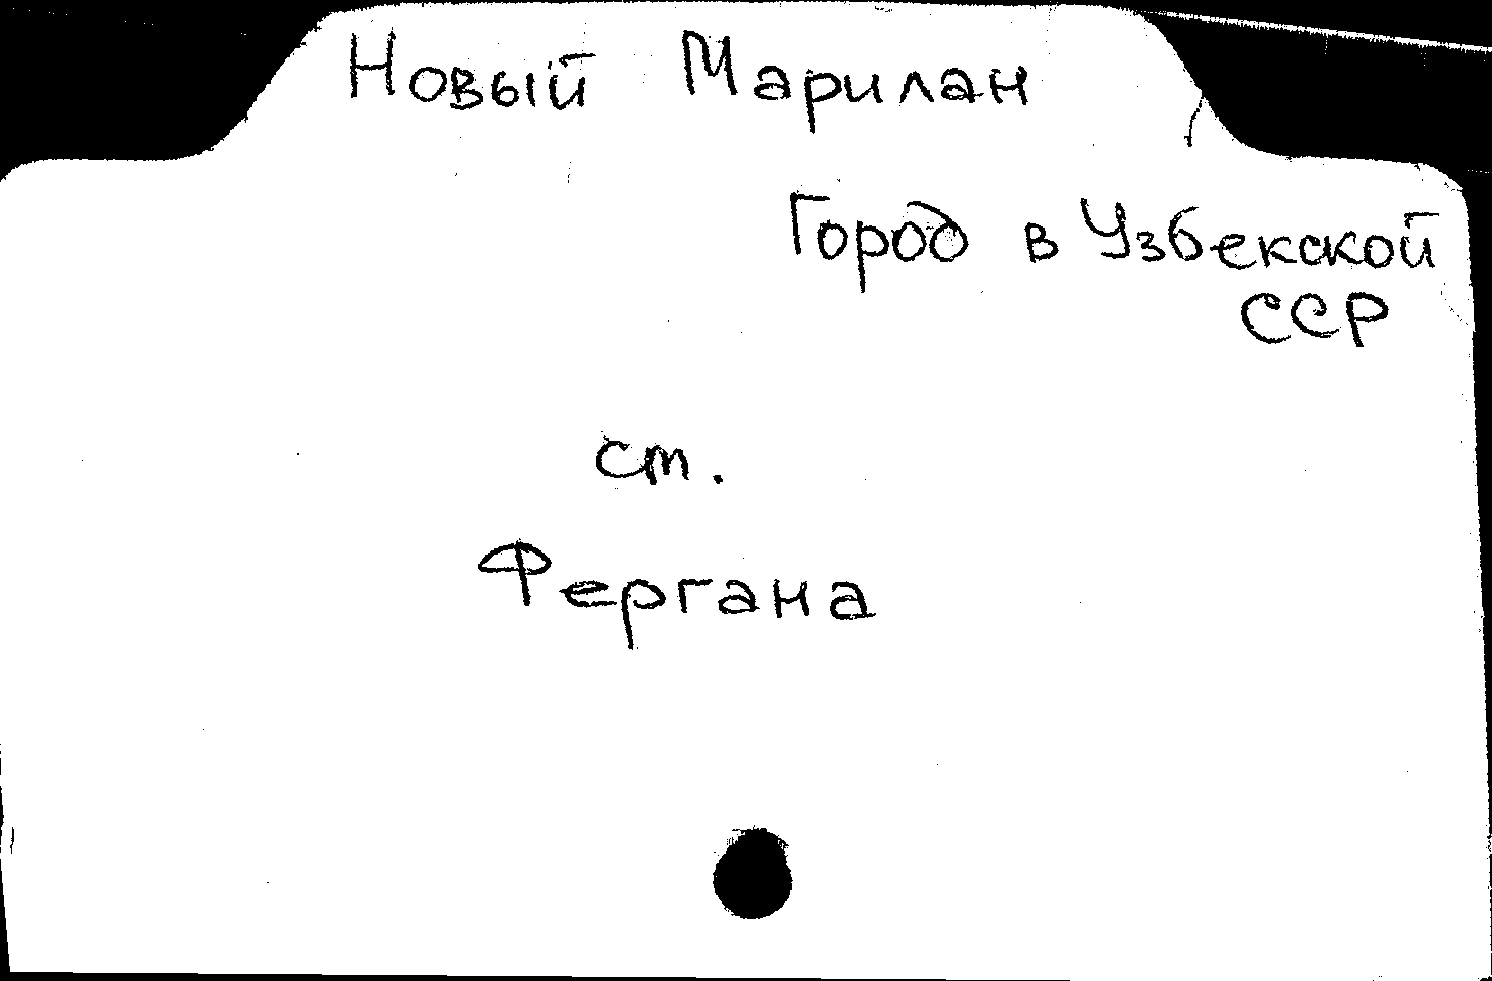 Новый Марилан
Город в Узбекской
ССР
ст.
Фергана